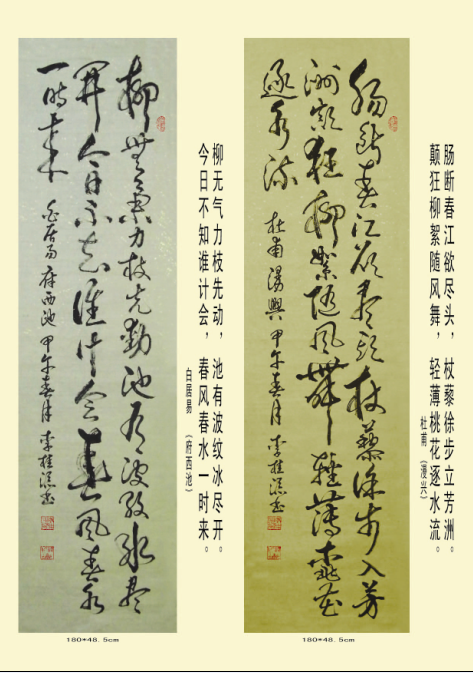 肠断春江欲尽头，杖藜徐步立芳洲。
颠狂柳絮随风舞，轻薄桃花逐水流。
杜甫 （漫兴）
腸斷春江欲盡头杖藜徐步入芳
洲颠狂柳絮随風舞輕薄桃花
逐水流
杜甫漫興甲午春月李桂
180*48.5cm
柳无气力枝先动，池有波纹冰尽开。
今日不知谁计会，春风春水一时来。
白居易 （府西池）
柳無氣力枝先動池有波紋冰盡
開今日不知誰计会春風春水
一時来
白居易府西池甲午春月李桂
180*48.5cm